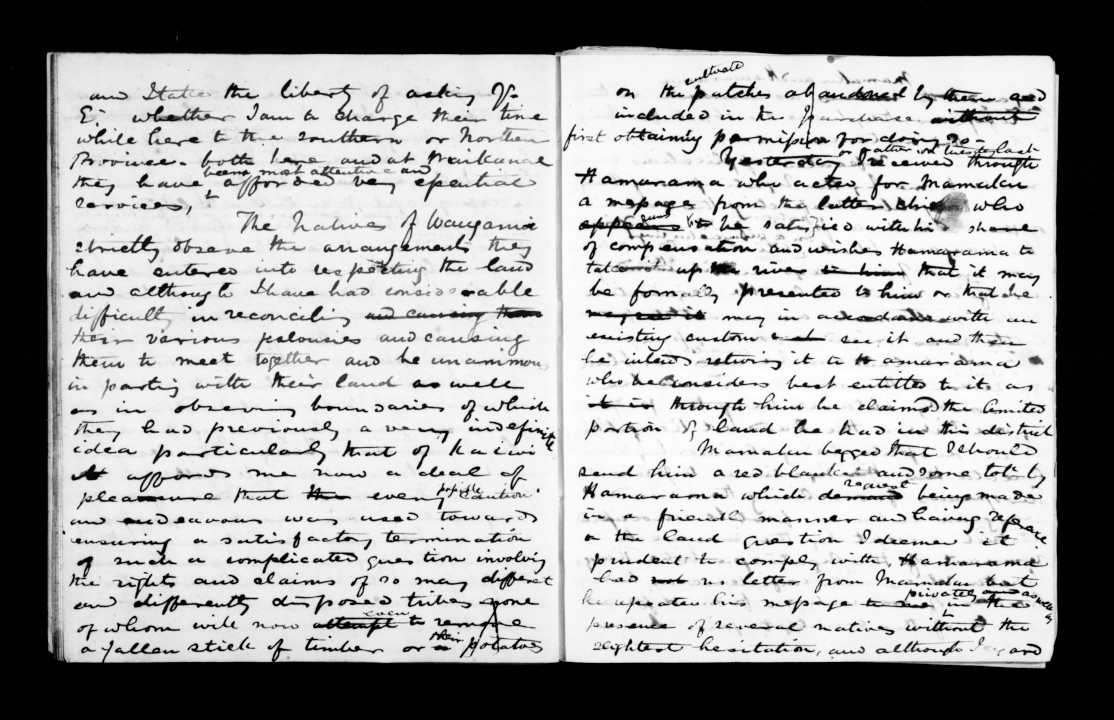 and State the liberty of asking Y.
E. whether I am to charge their time
while here to the southern or Northern
Province. both here and at Waikanae
they have been most attentive and afforded very essential
services,
The Natives of Wanganui
strictly observe the arrangements they
have entered into respecting the land
and although I have had considerable
difficulty in reconciling and causing them
their various jealousies and causing
them to meet together and be unanimous
in parting with their land as well
as in observing boundaries of which
they had previously a very indefinite
idea particularly that of Kaiwi
It affords me now a deal of
pleasure that the every possible caution
and endeavour was used towards
ensuring a satisfactory termination
of such a complicated question involving
the rights and claims of so many different
and differently disposed tribes none
of whom will now attempt to even remove
a fallen stick of timber or a their potatoes
or cultivate on the patches abandoned by them and
included in the purchase without
first obtaining permission for doing so.
Yesterday I received through
Hamarama who acted for Mamaku
a message from the latter chief who
appears to be satisfied with his share
of compensation and wishes Hamarama to
take up the river to him that it may
be formally presented to him or that he
may see it may in accordance with an
existing custom see it and then
he intends returning it to Hamarama
who he considers best entitled to it as
it is through him he claimed the limited
portion of land he had in this district
Mamaku begged that I should
send him a red blanket and some tob. by
Hamarama which demand request being made
in a friendly manner and having reference
to the land question I deemed it
prudent to comply with, Hamarama
had not no letter from Mamaku but
he repeated his message to me privately and as well as in the
presence of several natives without the
slightest hesitation, and although I and